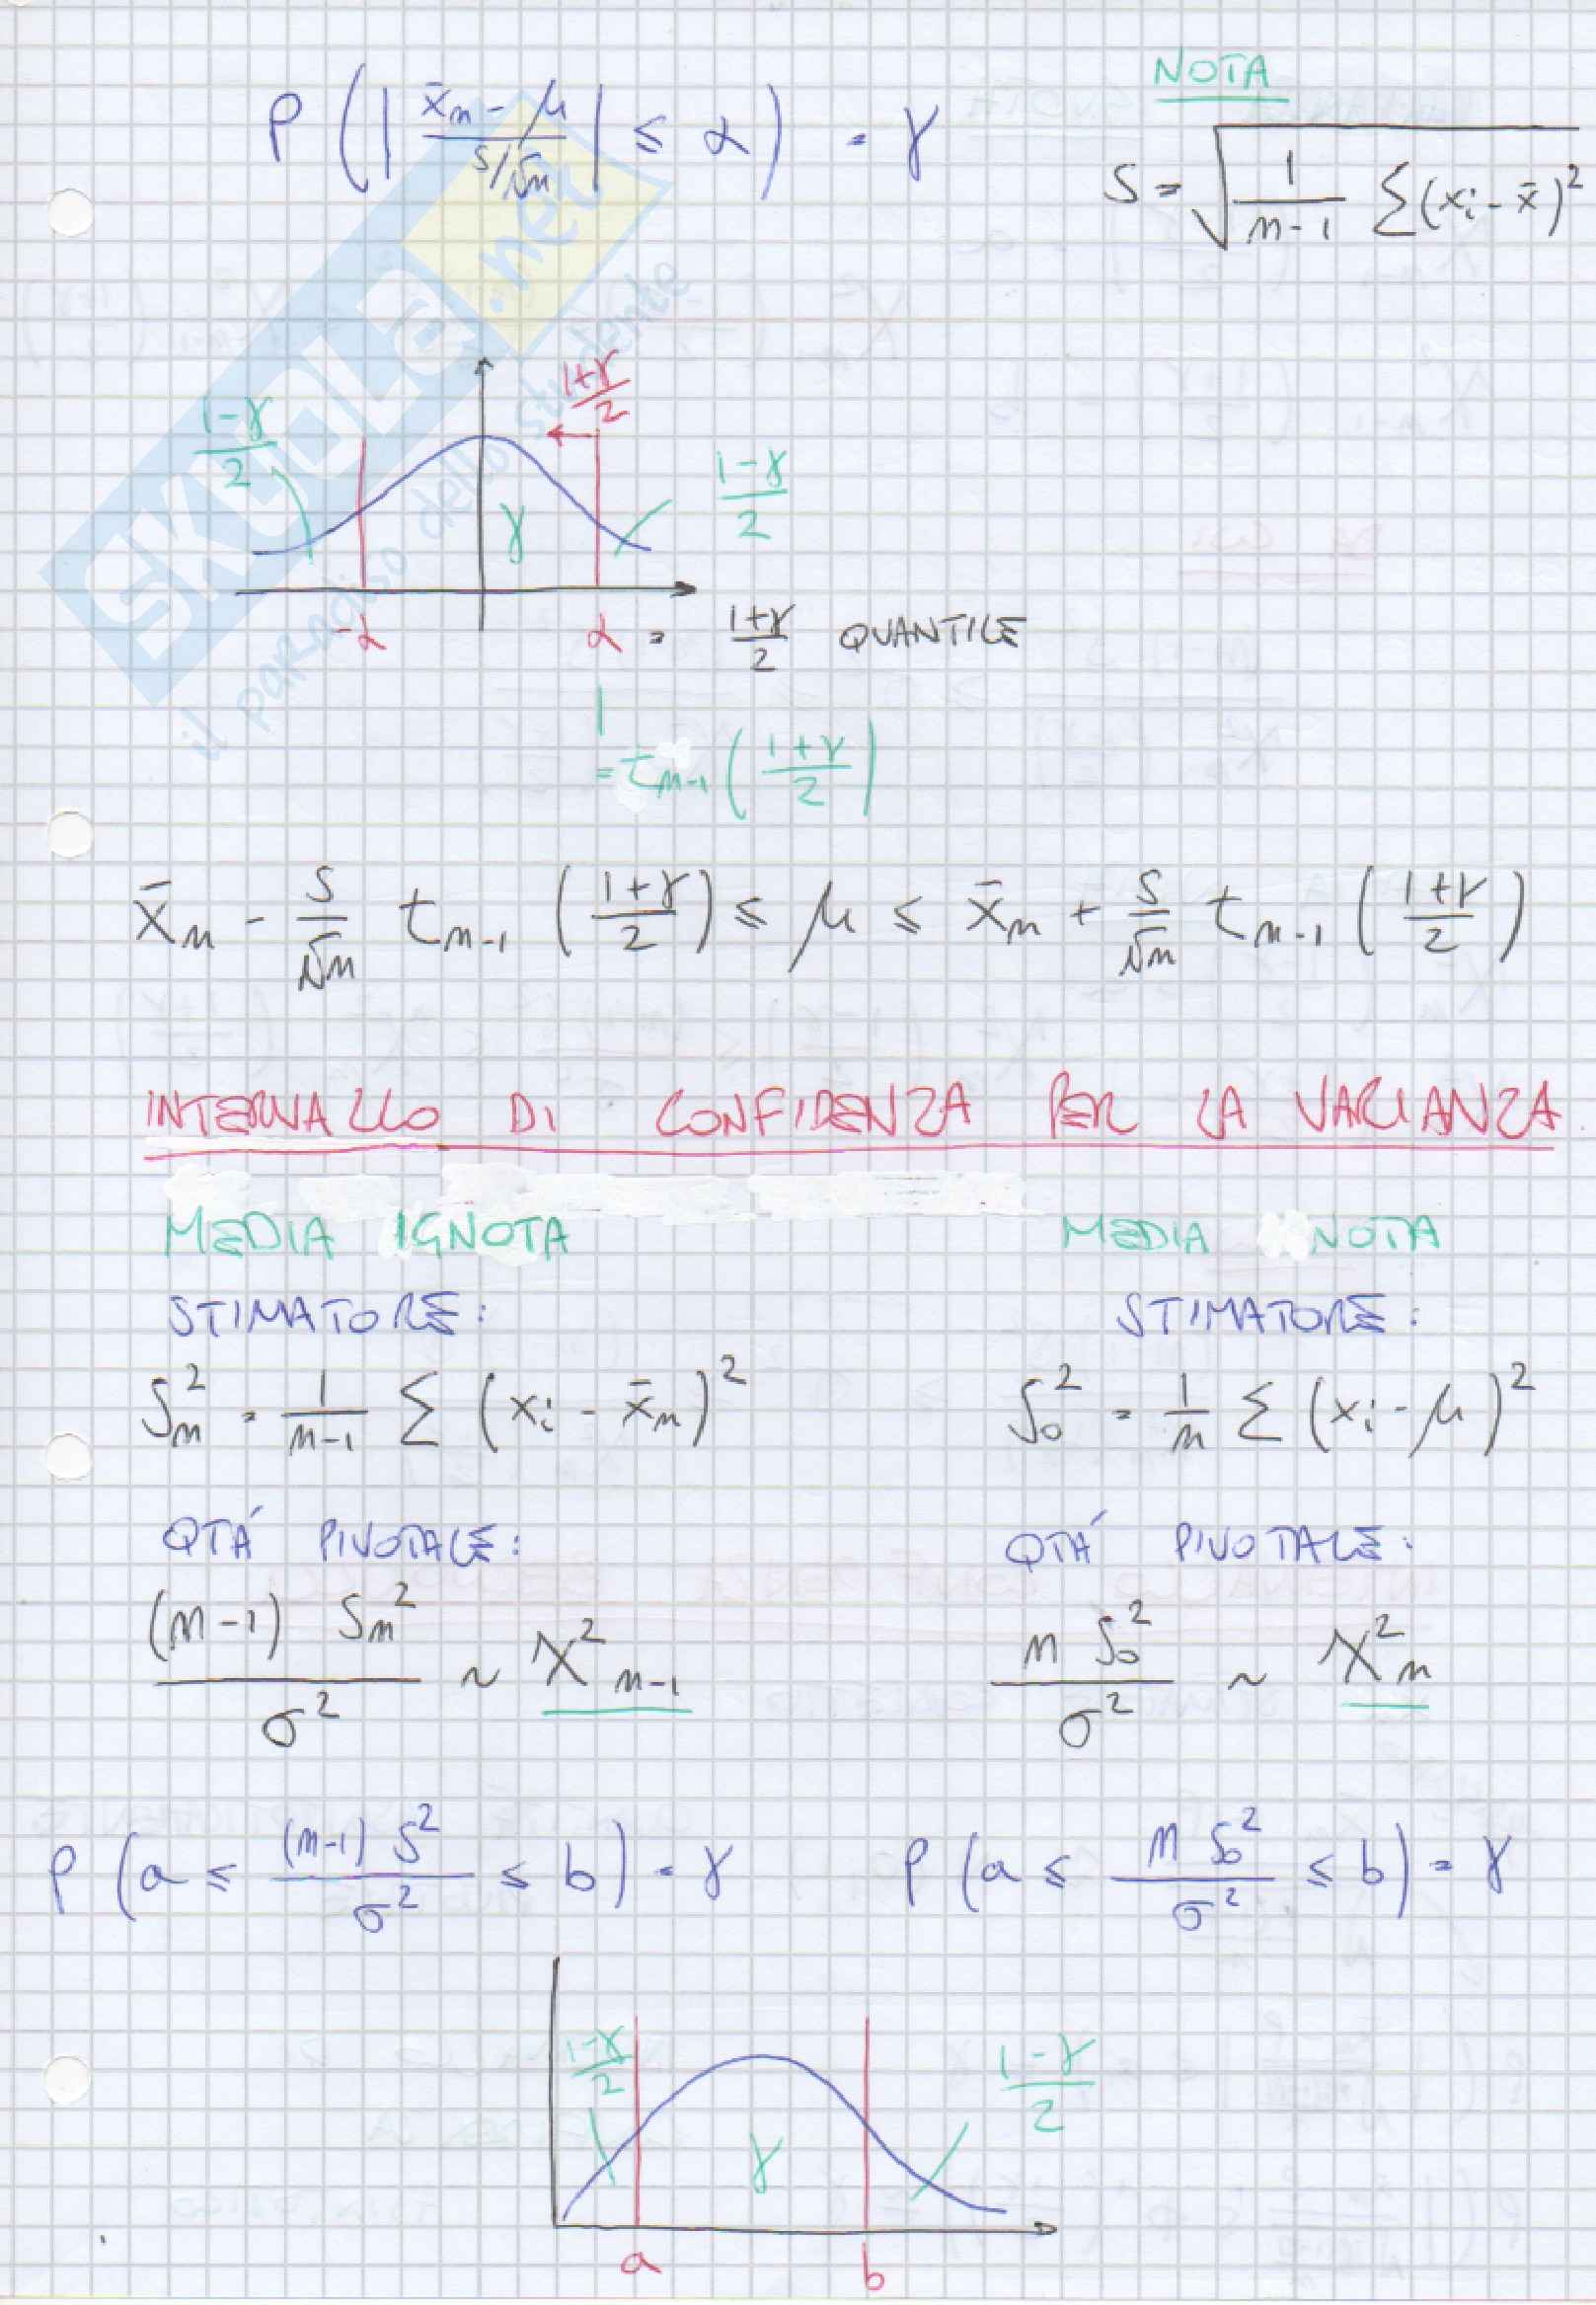 P ( | (x̄n - μ) / (s/√n) | ≤ α ) = γ
NOTA
S = √( 1/(n-1) Σ (xi - x̄)² )
SKUOLA.net
il paradiso dello studente
(1-γ)/2
(1+γ)/2
γ
(1-γ)/2
-α
α = (1+γ)/2 QUANTILE
= t n-1 ( (1+γ)/2 )
x̄n - s/√n t n-1 ( (1+γ)/2 ) ≤ μ ≤ x̄n + s/√n t n-1 ( (1+γ)/2 )
INTERVALLO DI CONFIDENZA PER LA VARIANZA
MEDIA IGNOTA
STIMATORE:
Sn² = 1/(n-1) Σ (xi - x̄n)²
QTÁ PIVOTALE:
(n-1) Sn² / σ² ~ χ² n-1
P ( a ≤ (n-1) S² / σ² ≤ b ) = γ
MEDIA NOTA
STIMATORE:
S0² = 1/n Σ (xi - μ)²
QTÁ PIVOTALE:
n S0² / σ² ~ χ² n
P ( a ≤ n S0² / σ² ≤ b ) = γ
(1-γ)/2
γ
(1-γ)/2
a
b